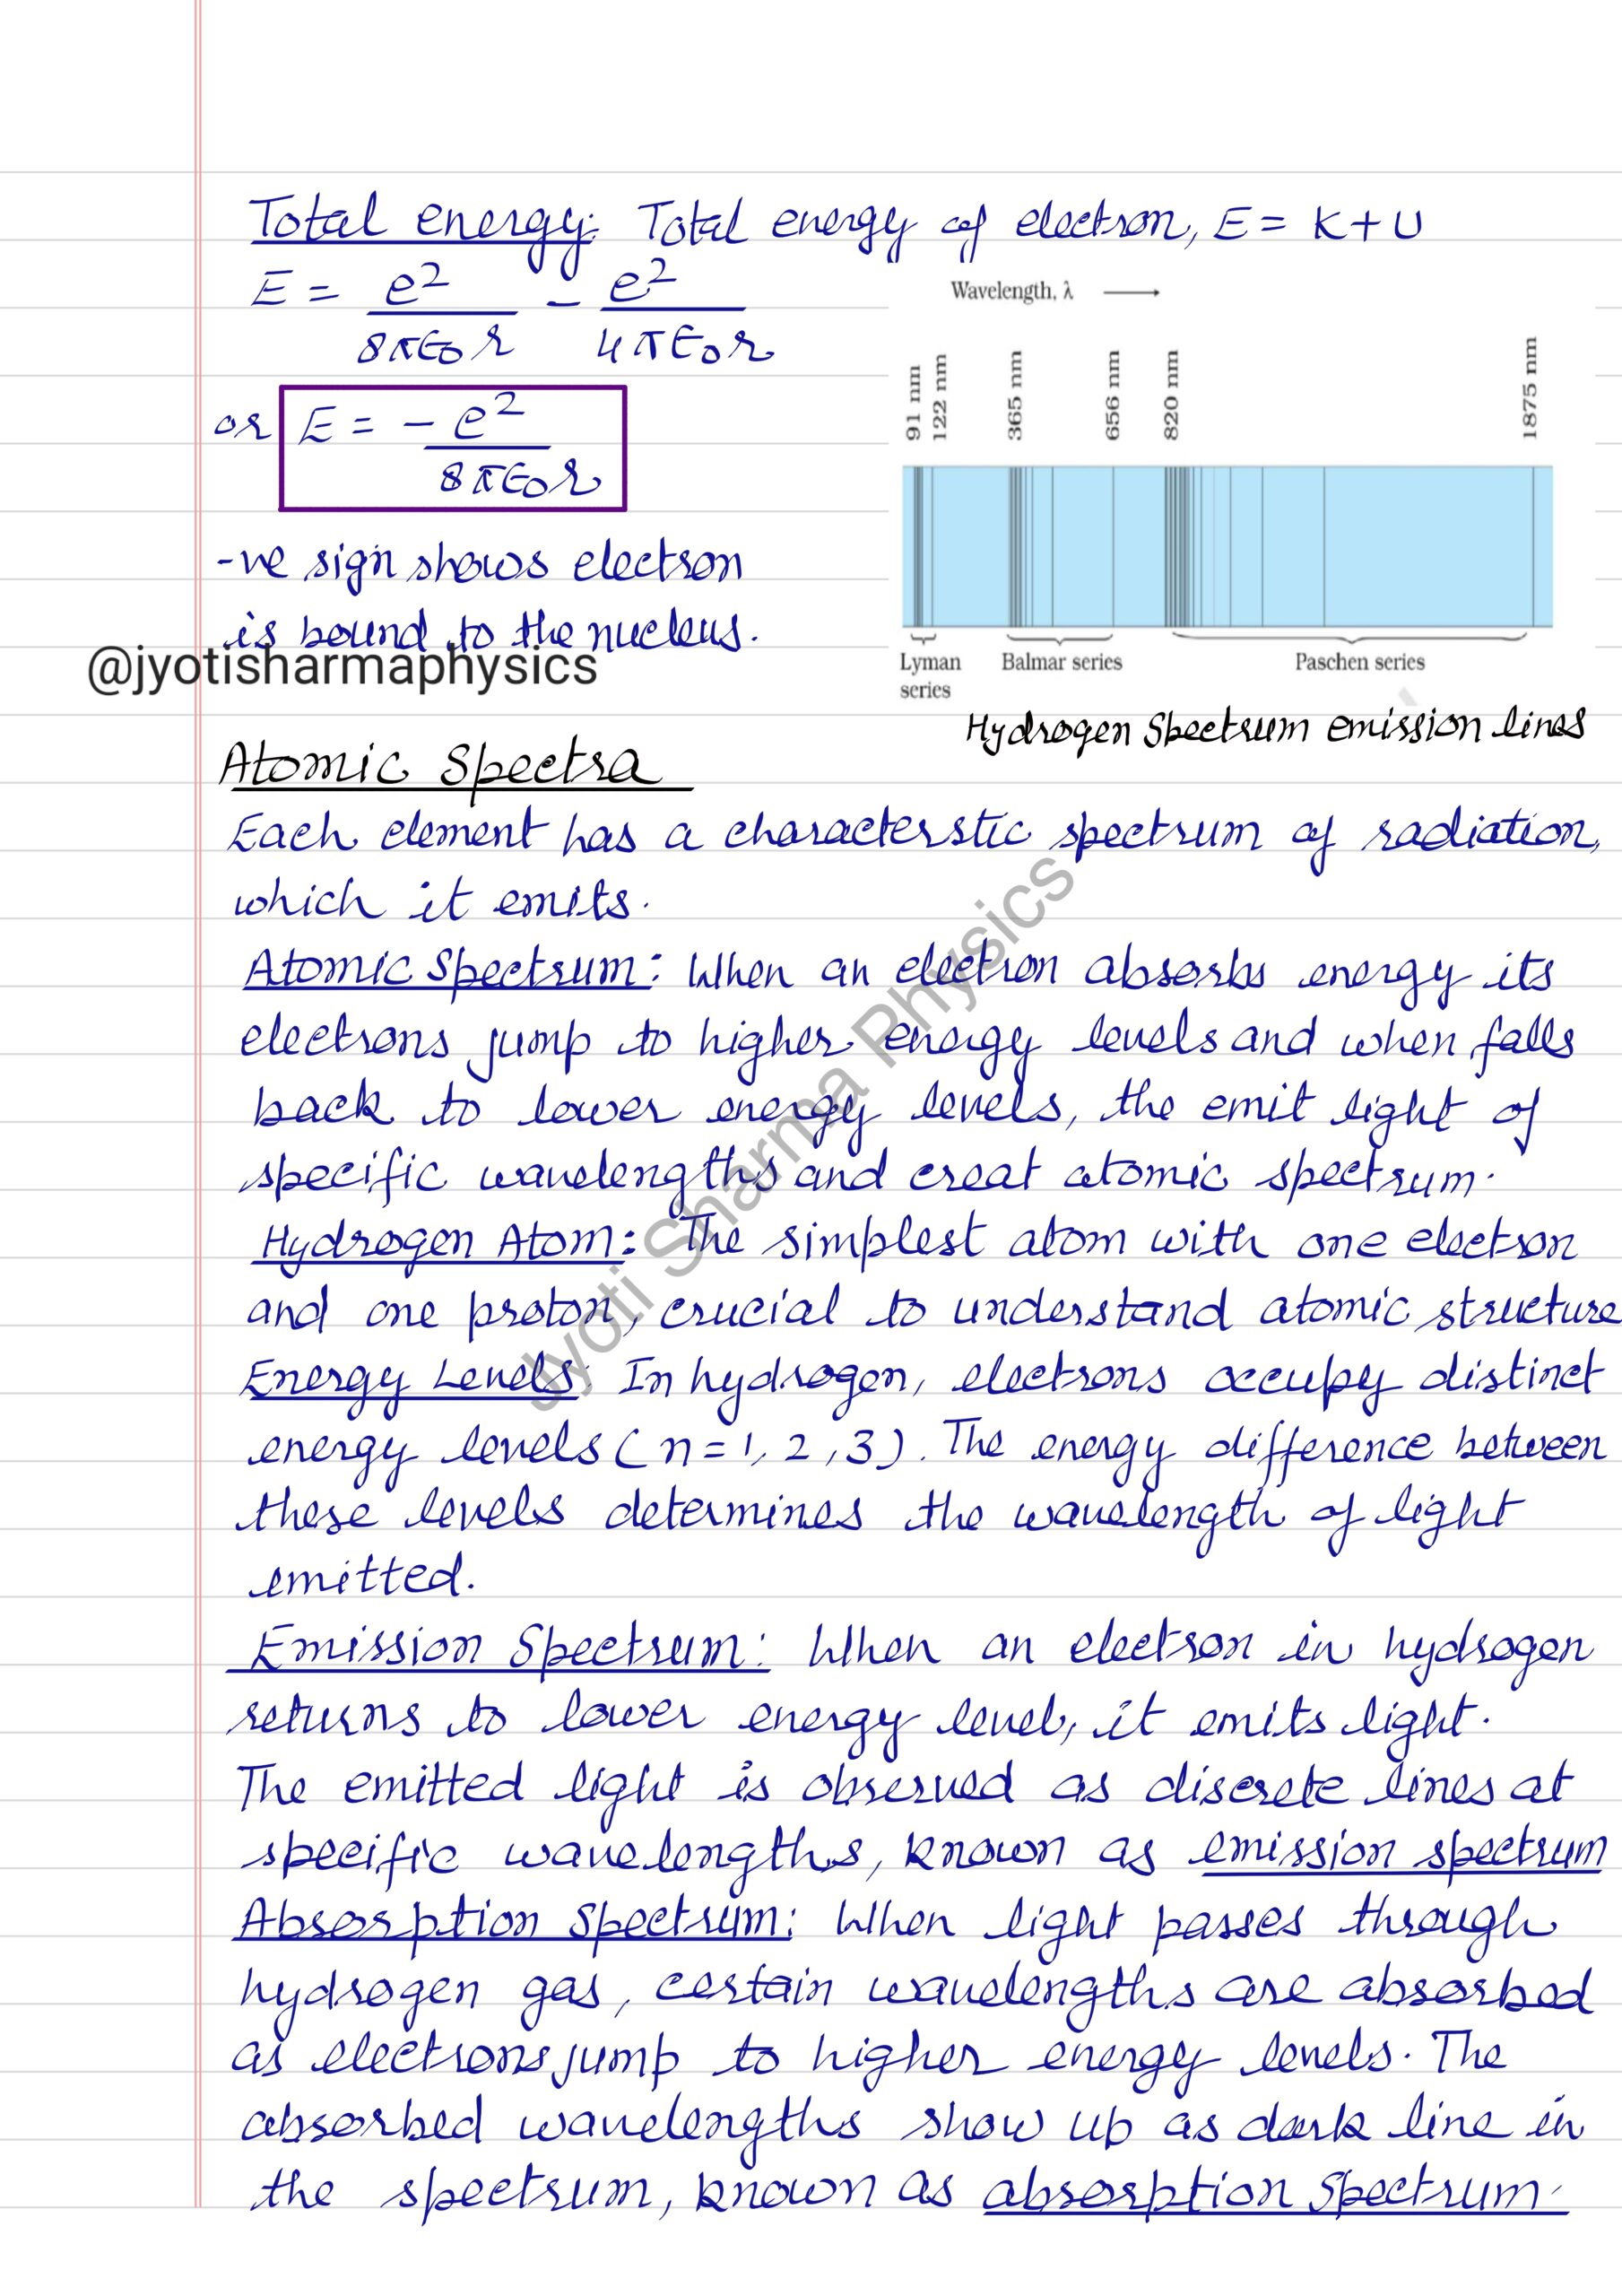 Total energy: Total energy of electron, E = K+U
E = e²/8πε₀r - e²/4πε₀r
or E = -e²/8πε₀r
-ve sign shows electron
is bound to the nucleus.
@jyotisharmaphysics
Wavelength, λ →
91 nm
122 nm
365 nm
656 nm
820 nm
1875 nm
Lyman
series
Balmar series
Paschen series
Hydrogen Spectrum emission lines
Atomic Spectra
Each element has a characterstic spectrum of radiation,
which it emits.
Atomic Spectrum: When an electron absorbs energy its
electrons jump to higher energy levels and when falls
back to lower energy levels, the emit light of
specific wavelengths and creat atomic spectrum.
Hydrogen Atom: The simplest atom with one electron
and one proton, crucial to understand atomic structure
Energy Levels: In hydrogen, electrons occupy distinct
energy levels (n=1, 2, 3). The energy difference between
these levels determines the wavelength of light
emitted.
Emission Spectrum: When an electron in hydrogen
returns to lower energy level, it emits light.
The emitted light is observed as discrete lines at
specific wavelengths, known as emission spectrum
Absorption Spectrum: When light passes through
hydrogen gas, certain wavelengths are absorbed
as electrons jump to higher energy levels. The
absorbed wavelengths show up as dark line in
the spectrum, known as absorption spectrum.
Jyoti Sharma Physics